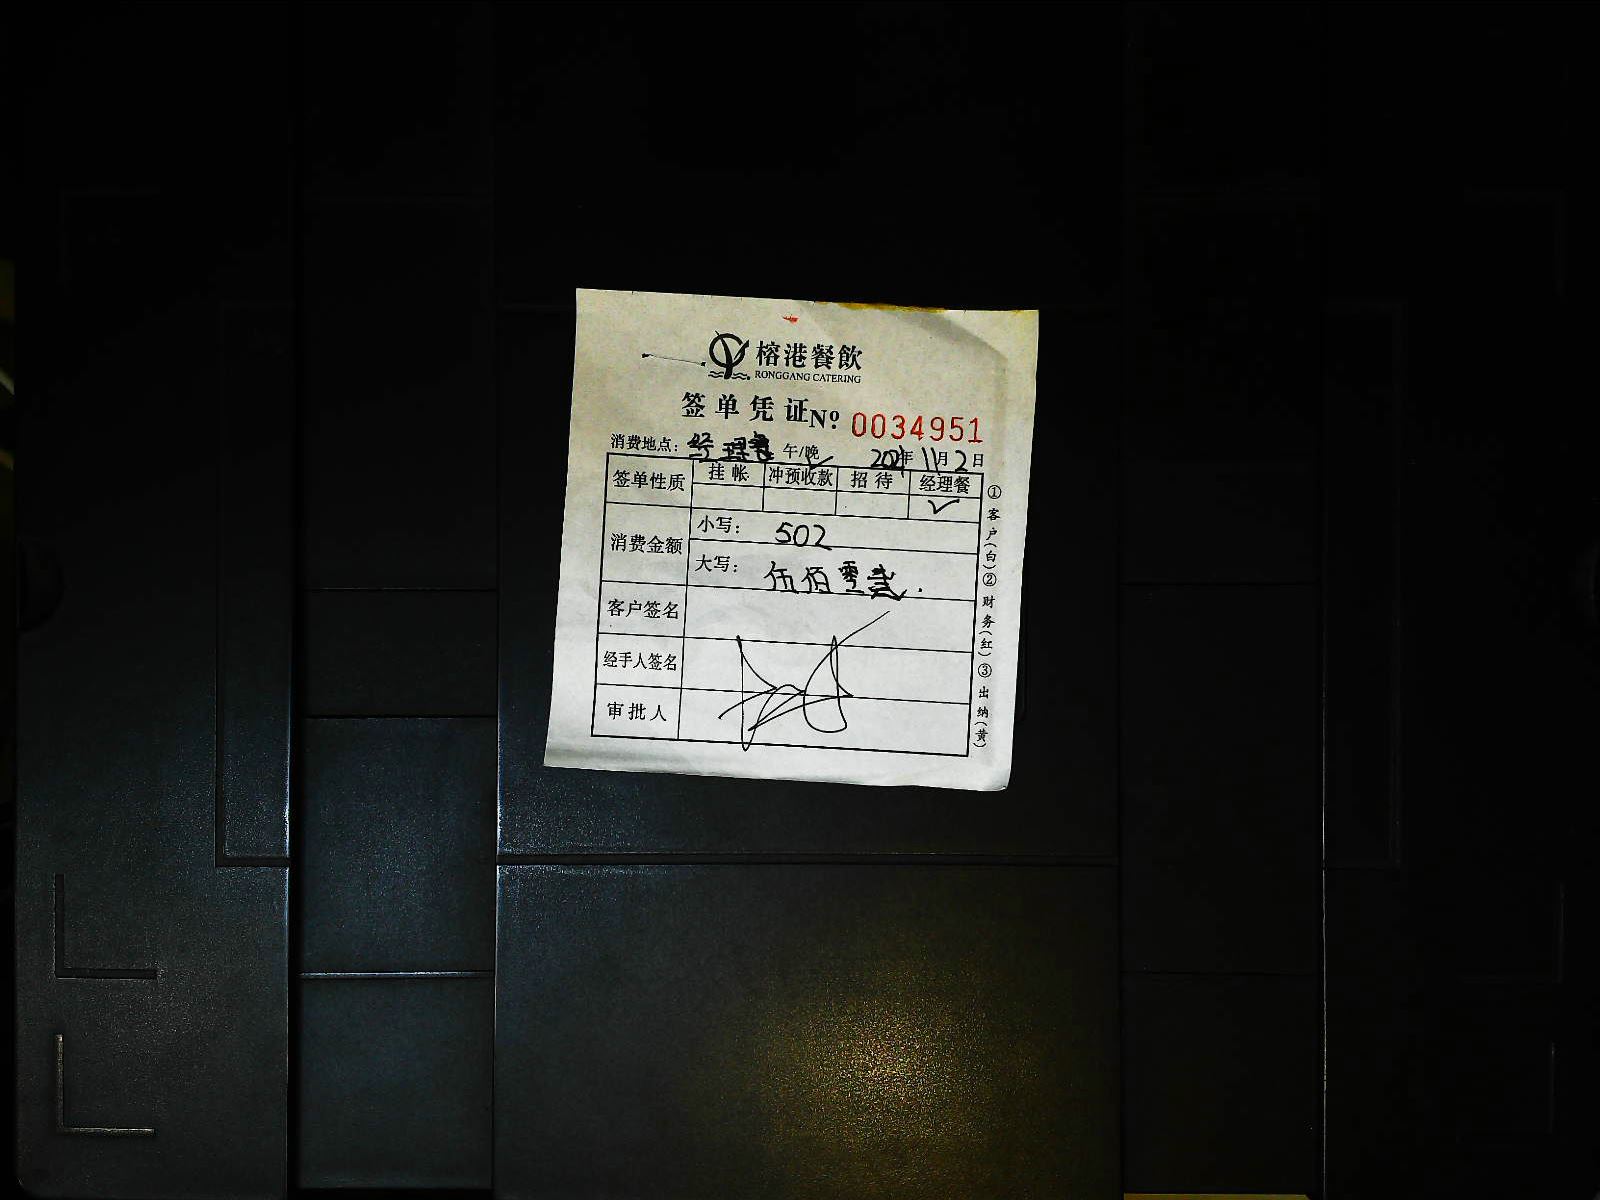 榕港餐飲
RONGGANG CATERING
签单凭证 Nº 0034951
消费地点：经理餐 午/晚 2021年11月2日
签单性质 挂帐 冲预收款 招待 经理餐
✓
消费金额 小写：502
大写：伍佰零贰.
客户签名
经手人签名
审批人
①客户(白)②财务(红)③出纳(黄)